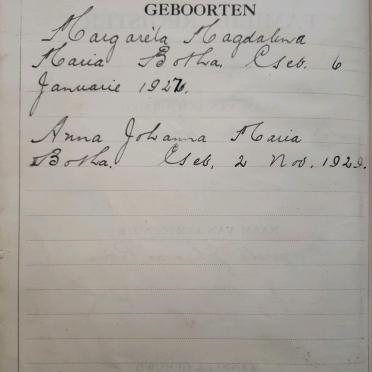 GEBOORTEN
Margaréta Magdalena
Maria Botha. Geb. 6
Januarie 1927.
Anna Johanna Maria
Botha. Geb. 2 Nov. 1929.